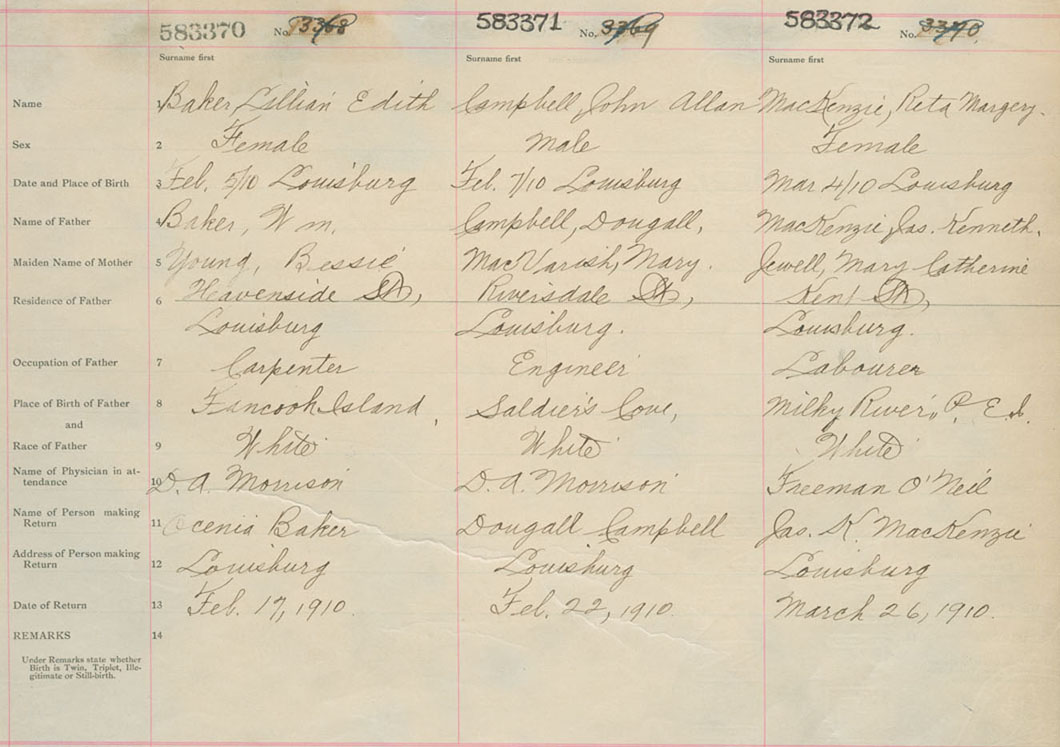 583370 No. 3368 583371 No. 3369 583372 No. 3370
Surname first Surname first Surname first
Name 1 Baker, Lillian Edith Campbell, John Allan MacKenzie, Reta Margery.
Sex 2 Female Male Female
Date and Place of Birth 3 Feb. 5/10 Louisburg Feb. 7/10 Louisburg Mar 4/10 Louisburg
Name of Father 4 Baker, Wm, Campbell, Dougall, MacKenzie, Jas. Kenneth.
Maiden Name of Mother 5 Young, Bessie MacVarish, Mary. Jewell, Mary Catherine
Residence of Father 6 Heavenside St, Riversdale St, Kent St,
Louisburg Louisburg. Louisburg.
Occupation of Father 7 Carpenter Engineer Labourer
Place of Birth of Father 8 Tancook Island, Saldier's Cove, Milky River, P. E. I.
and
Race of Father 9 White White White
Name of Physician in at-
tendance 10 D. A. Morrison D. A. Morrison Freeman O'Neil
Name of Person making
Return 11 Ocenia Baker Dougall Campbell Jas. K. MacKenzie
Address of Person making
Return 12 Louisburg Louisburg Louisburg
Date of Return 13 Feb. 17, 1910. Feb. 22, 1910. March 26, 1910.
REMARKS 14
Under Remarks state whether
Birth is Twin, Triplet, Ille-
gitimate or Still-birth.